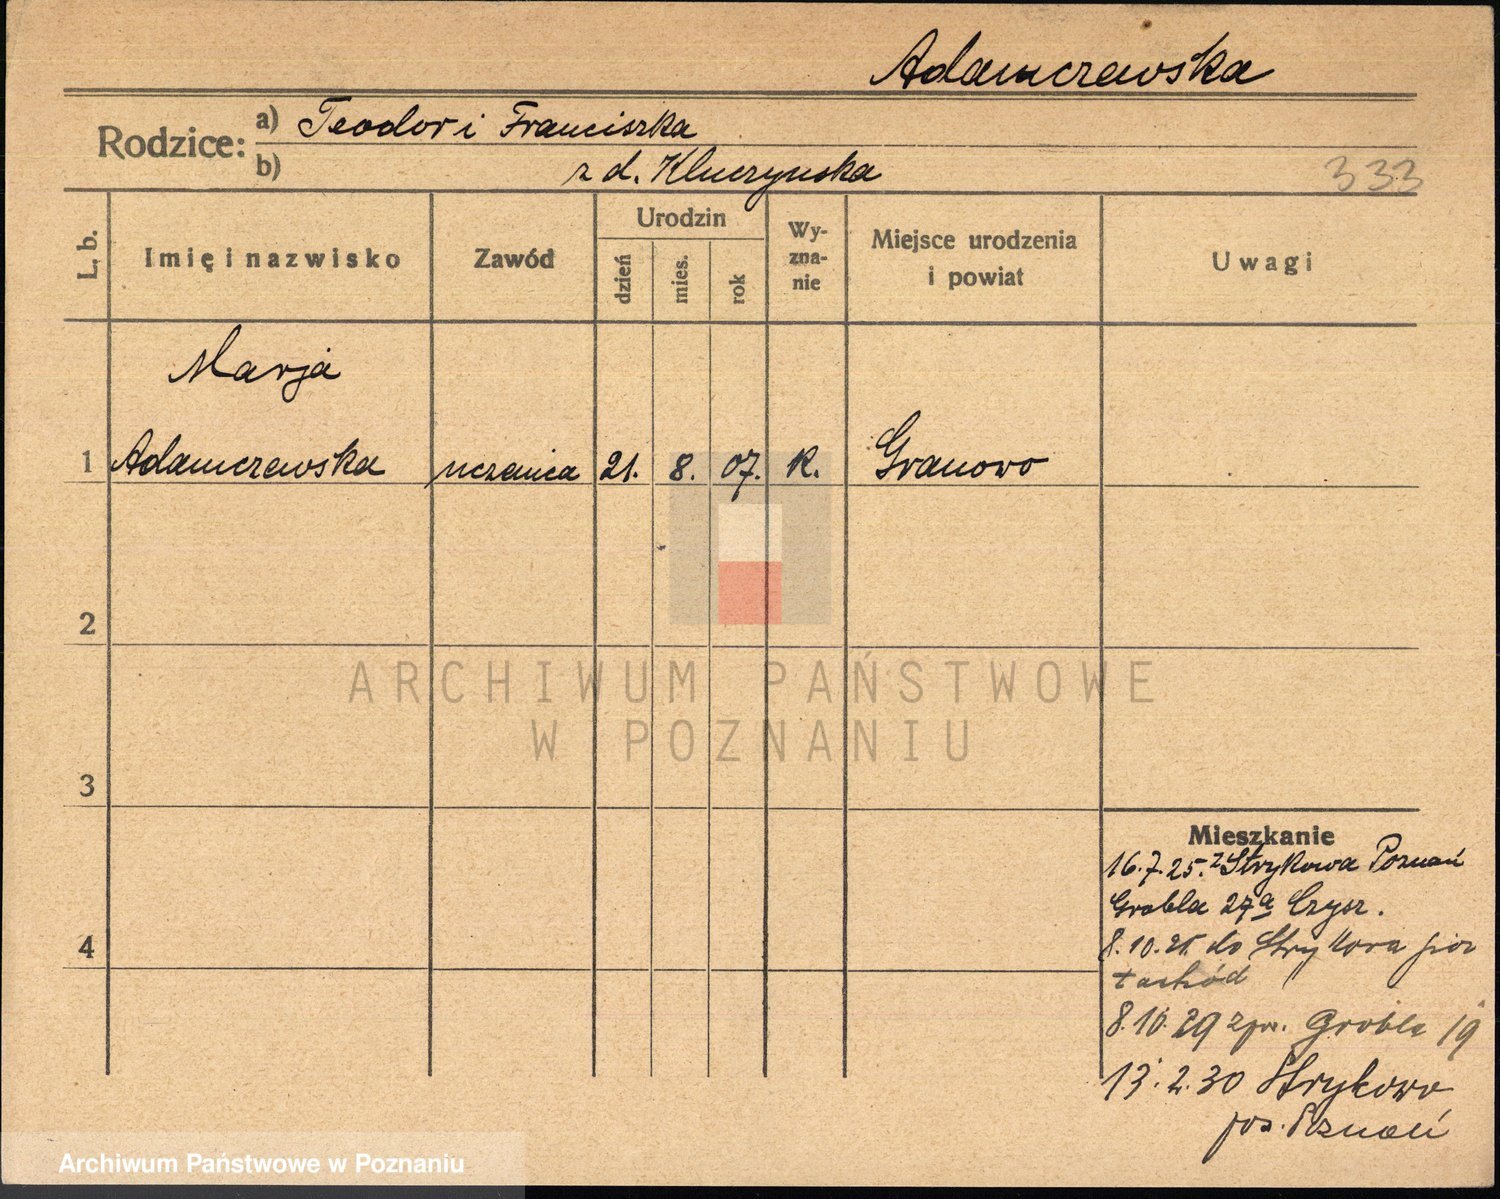 Adamczewska
Rodzice: a) Teodor i Franciszka
b) z d. Kluczyńska
333
L. b.
Imię i nazwisko
Zawód
Urodzin
dzień
mies.
rok
Wy-
zna-
nie
Miejsce urodzenia
i powiat
Uwagi
Marja
1 Adamczewska uczenica 21. 8. 07. K. Granowo
2
3
4
Mieszkanie
16.7.25. z Strykowa Poznań
Grobla 27a Czysz.
8.10.25 do Strykowa
zachód
8.10.29 Grobla 19
13.2.30 Strykowo
Poznań
ARCHIWUM PAŃSTWOWE
W POZNANIU
Archiwum Państwowe w Poznaniu